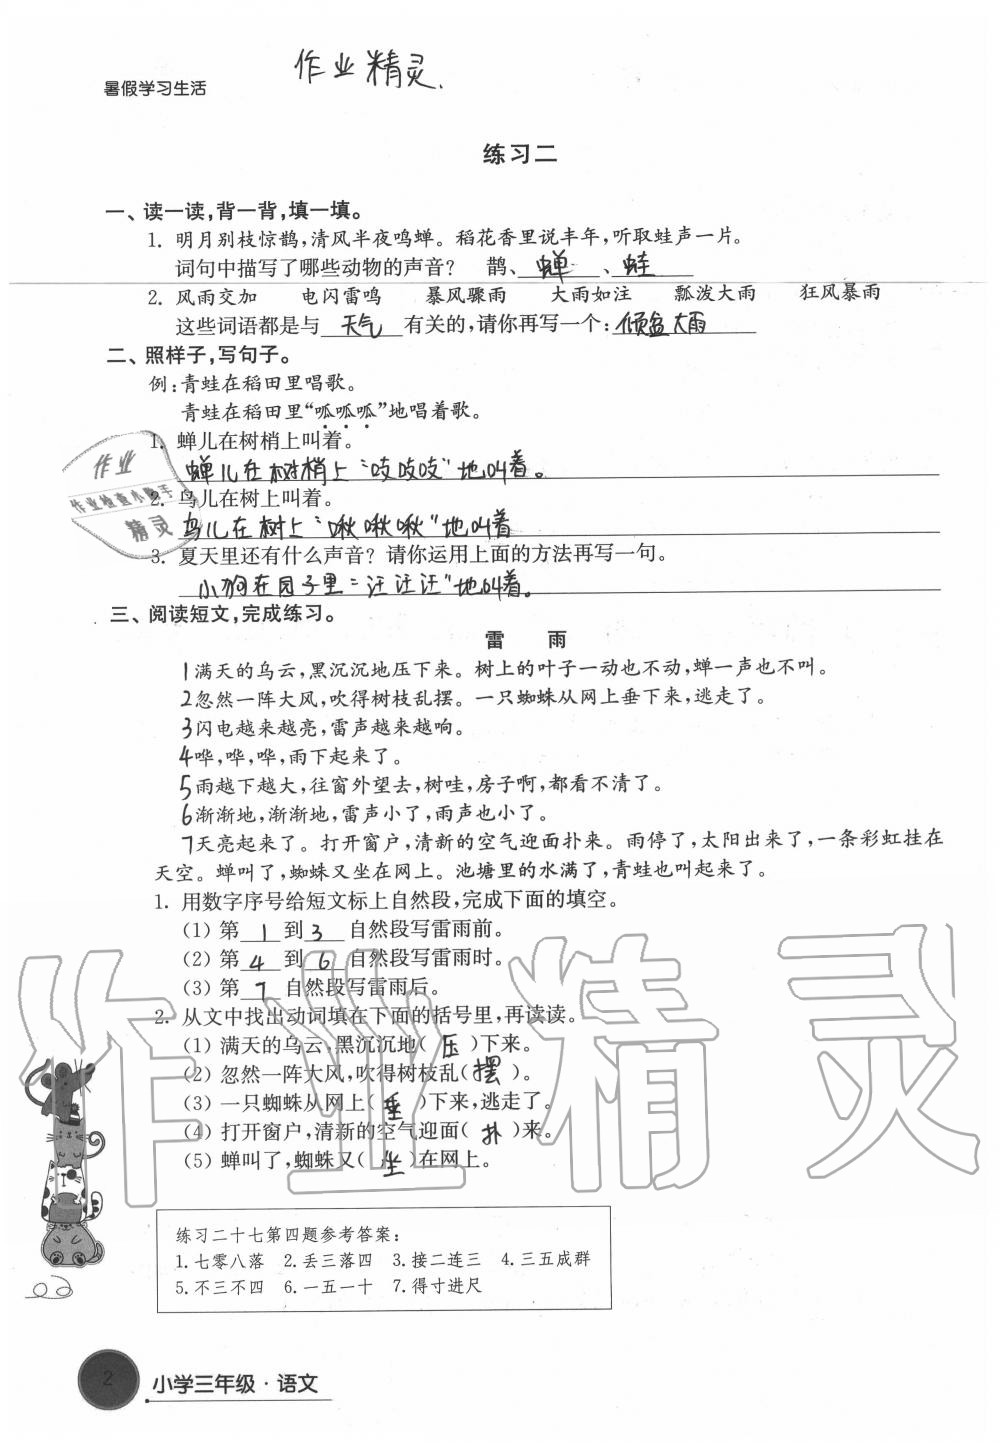 作业精灵.
暑假学习生活
练习二
一、读一读,背一背,填一填。
1. 明月别枝惊鹊,清风半夜鸣蝉。稻花香里说丰年,听取蛙声一片。
词句中描写了哪些动物的声音? 鹊、蝉、蛙
2. 风雨交加 电闪雷鸣 暴风骤雨 大雨如注 瓢泼大雨 狂风暴雨
这些词语都是与天气有关的,请你再写一个:倾盆大雨
二、照样子,写句子。
例:青蛙在稻田里唱歌。
青蛙在稻田里“呱呱呱”地唱着歌。
1. 蝉儿在树梢上叫着。
蝉儿在树梢上“吱吱吱”地叫着。
作业
作业检查小助手
精灵
2. 鸟儿在树上叫着。
鸟儿在树上“啾啾啾”地叫着
3. 夏天里还有什么声音? 请你运用上面的方法再写一句。
小狗在园子里“汪汪汪”地叫着。
三、阅读短文,完成练习。
雷 雨
1满天的乌云,黑沉沉地压下来。树上的叶子一动也不动,蝉一声也不叫。
2忽然一阵大风,吹得树枝乱摆。一只蜘蛛从网上垂下来,逃走了。
3闪电越来越亮,雷声越来越响。
4哗,哗,哗,雨下起来了。
5雨越下越大,往窗外望去,树哇,房子啊,都看不清了。
6渐渐地,渐渐地,雷声小了,雨声也小了。
7天亮起来了。打开窗户,清新的空气迎面扑来。雨停了,太阳出来了,一条彩虹挂在
天空。蝉叫了,蜘蛛又坐在网上。池塘里的水满了,青蛙也叫起来了。
1. 用数字序号给短文标上自然段,完成下面的填空。
(1) 第1到3自然段写雷雨前。
(2) 第4到6自然段写雷雨时。
(3) 第7自然段写雷雨后。
2. 从文中找出动词填在下面的括号里,再读读。
(1) 满天的乌云,黑沉沉地(压)下来。
(2) 忽然一阵大风,吹得树枝乱(摆)。
(3) 一只蜘蛛从网上(垂)下来,逃走了。
(4) 打开窗户,清新的空气迎面(扑)来。
(5) 蝉叫了,蜘蛛又(坐)在网上。
作业精灵
练习二十七第四题参考答案:
1. 七零八落 2. 丢三落四 3. 接二连三 4. 三五成群
5. 不三不四 6. 一五一十 7. 得寸进尺
2 小学三年级·语文